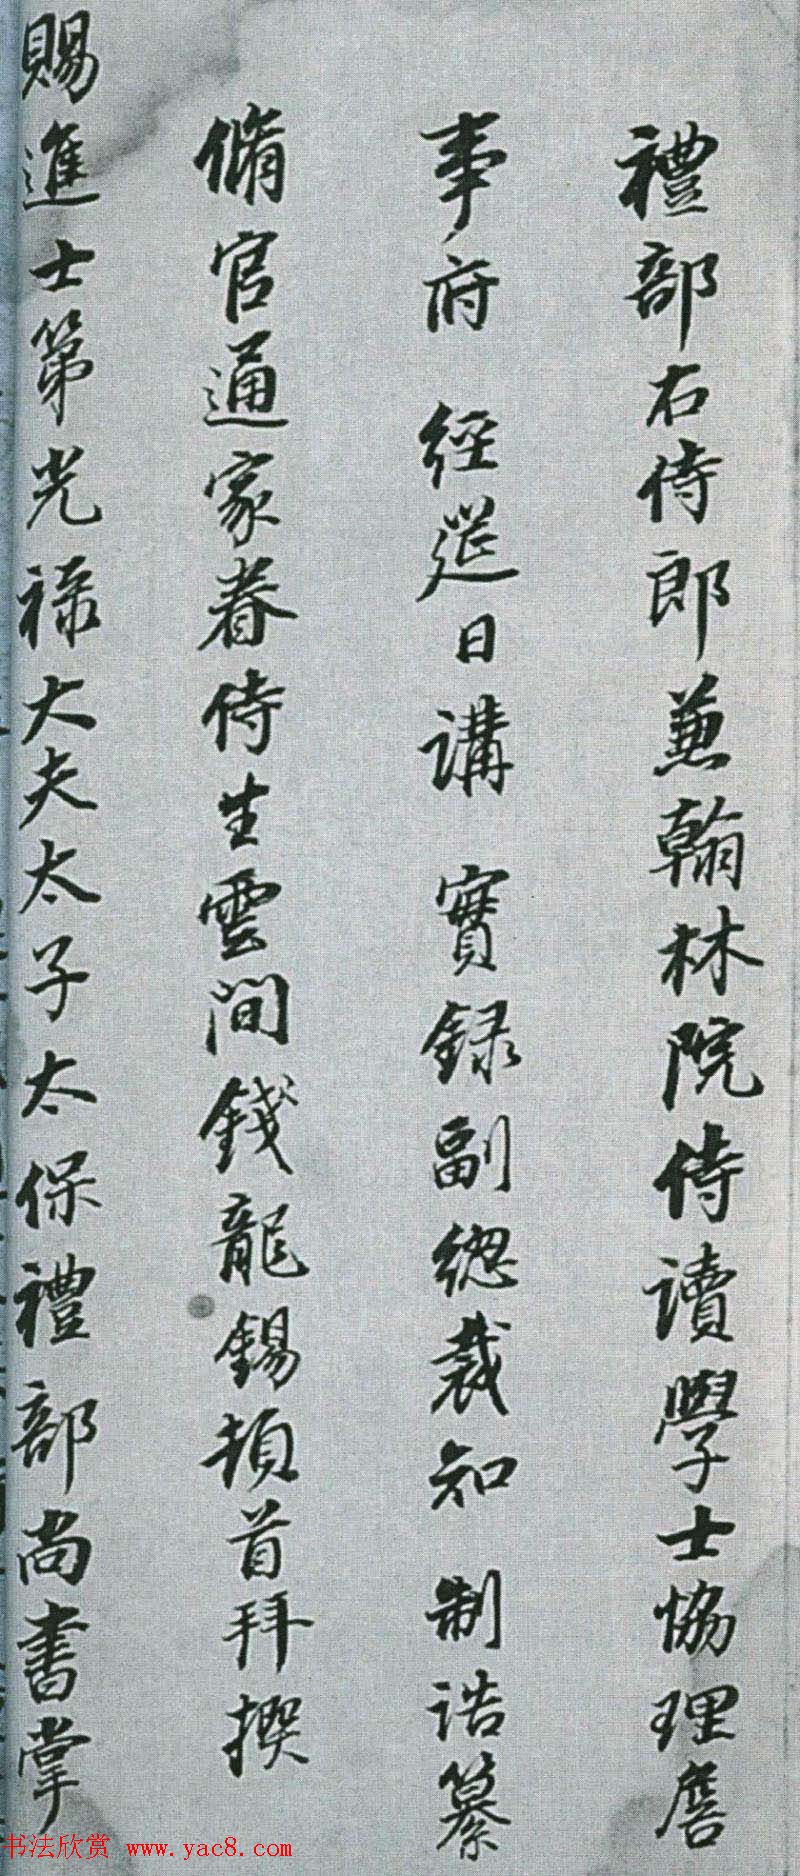 禮部右侍郎兼翰林院侍讀學士協理詹
事府 經筵日講 實録副總裁知 制誥纂
脩官通家眷侍生雲間錢龍錫頓首拜撰
賜進士第光禄大夫太子太保禮部尚書掌
书法欣赏 www.yac8.com